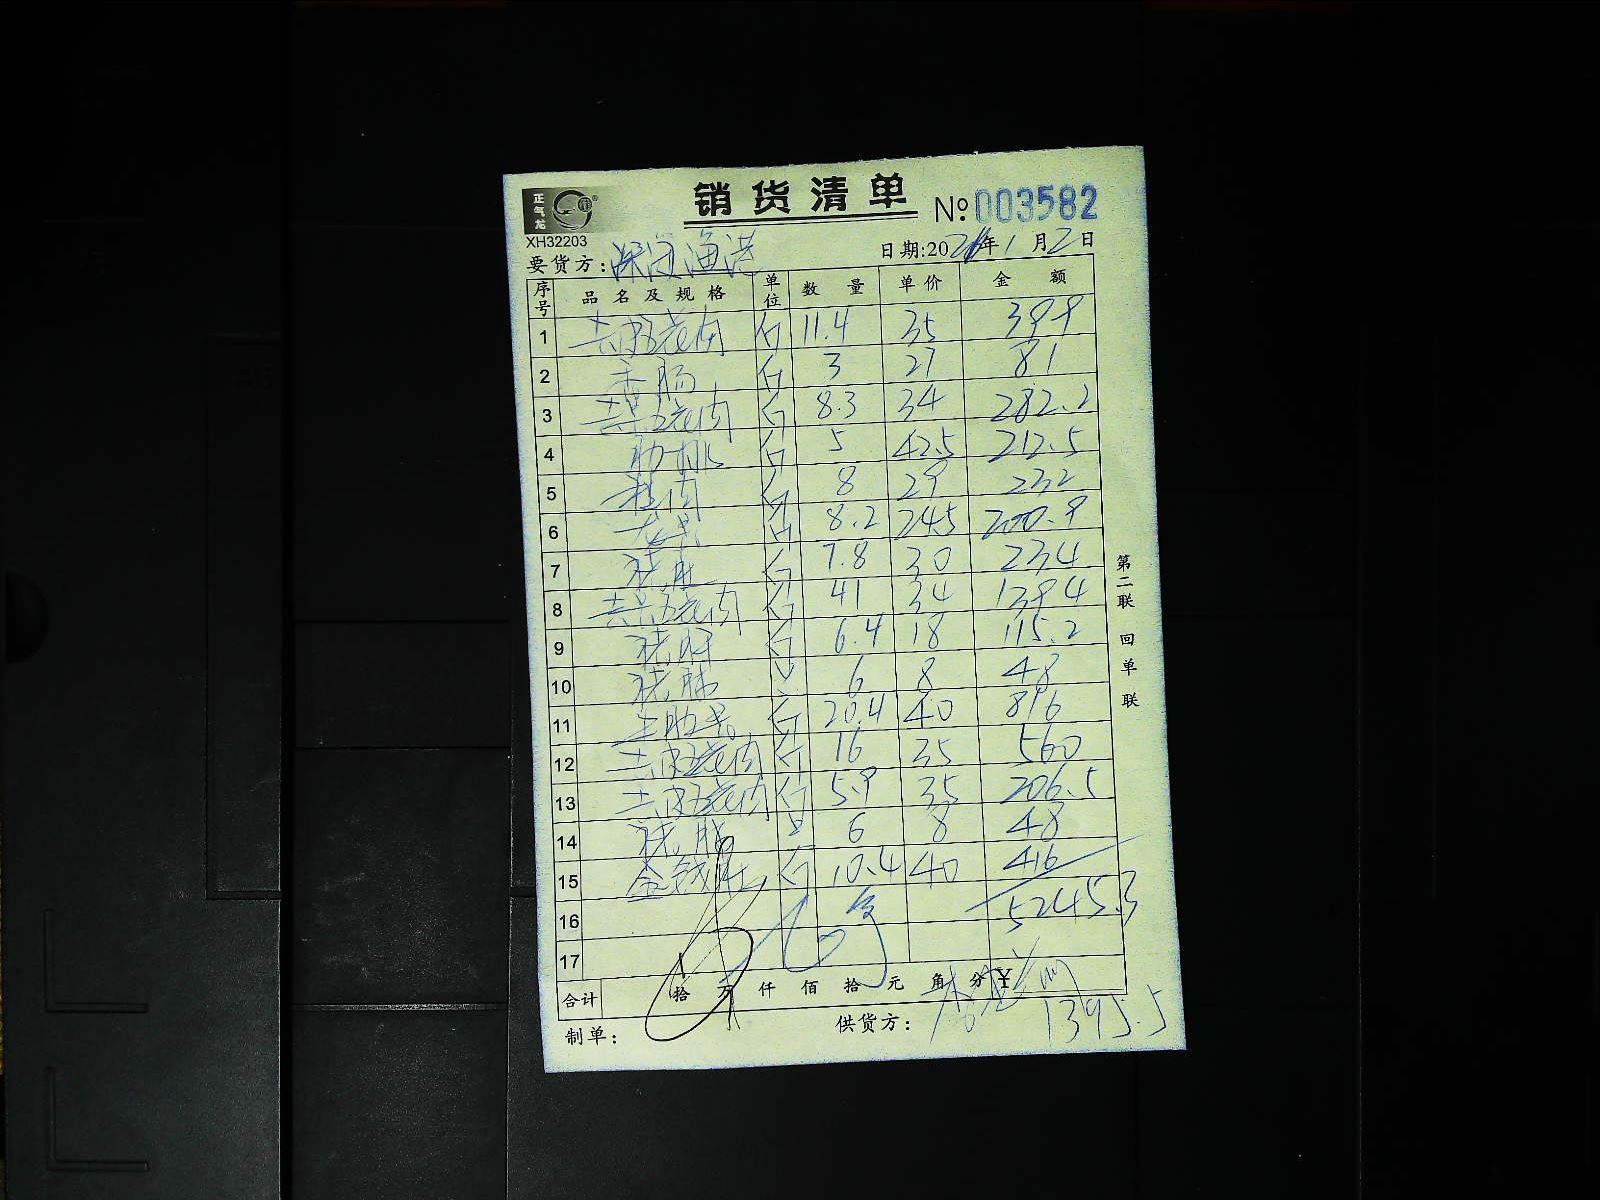 正气龙
销货清单
№:003582
XH32203
要货方:深渔港
日期:2026年1月2日
序号 品名及规格 单位 数量 单价 金额
1 去皮五花肉 斤 11.4 35 399
2 香肠 斤 3 27 81
3 去骨五花肉 斤 8.3 34 282.2
4 肋排 斤 5 42.5 212.5
5 斤 8 29 232
6 龙骨 斤 8.2 24.5 200.9
7 猪肚 斤 7.8 30 234
8 去骨五花肉 斤 41 34 1394
9 猪肝 斤 6.4 18 115.2
10 猪 6 8 48
11 斤 20.4 40 816
12 去皮五花肉 斤 16 35 560
13 去皮五花肉 斤 5.9 35 206.5
14 猪 6 8 48
15 金钱肚 斤 10.4 40 416
16 5245.3
17
合计 拾 万 仟 佰 拾 元 角 分 ¥
制单: 供货方: 1395.5
第二联 回单联